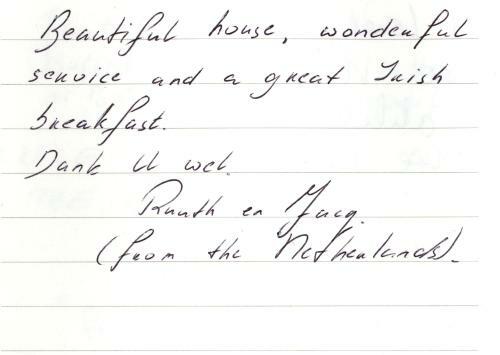 Beautiful house, wonderful
service and a great Irish
breakfast.
Dank U wel.
Ruuth en Jacq.
(from the Netherlands).